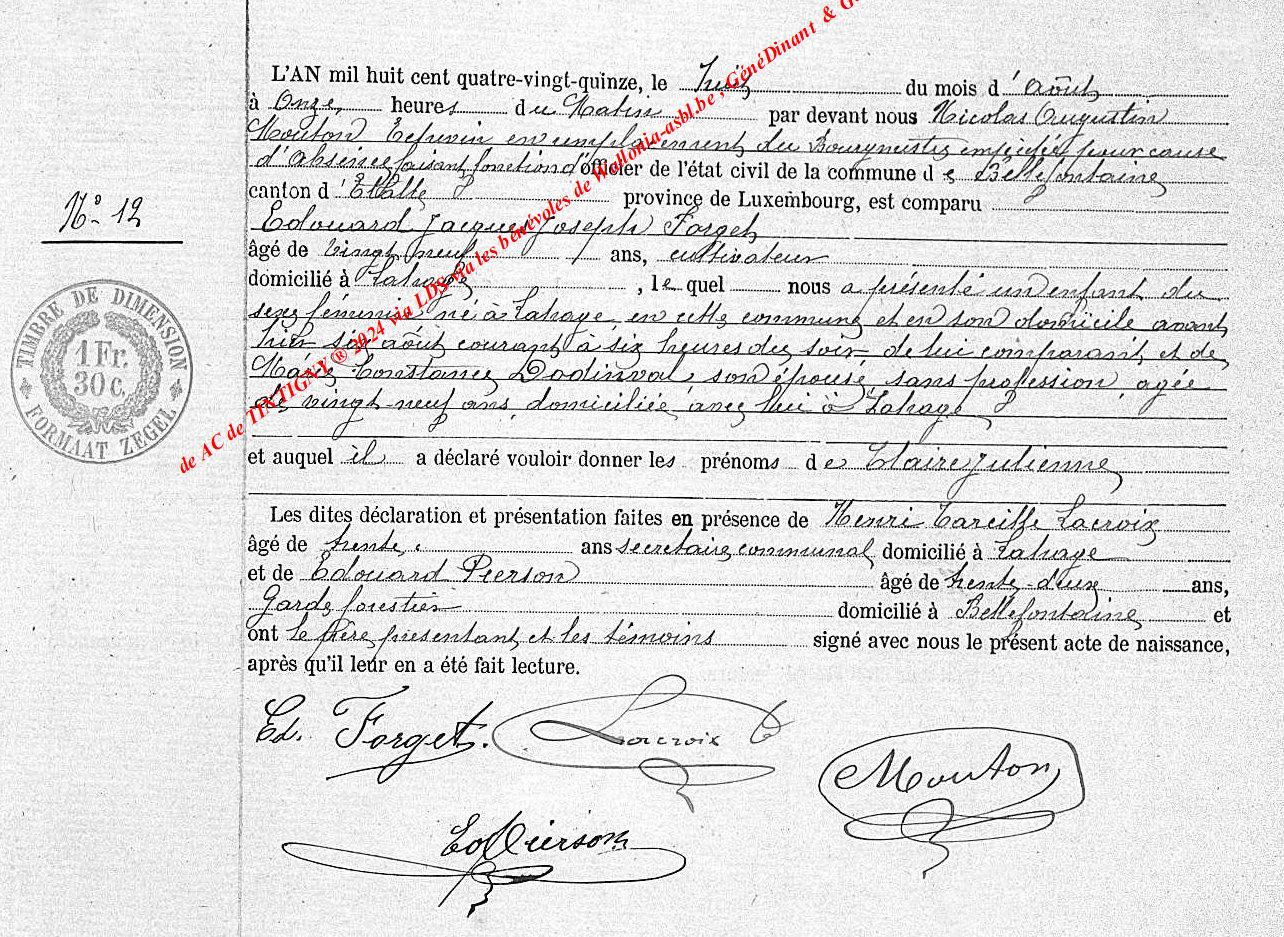 L'AN mil huit cent quatre-vingt-quinze, le huit du mois d'Août
à Onze heures du Matin par devant nous Nicolas Augustin
Mouton Echevin en remplacement du Bourgmestre empêché pour cause
d'Absence faisant fonction d'officier de l'état civil de la commune de Bellefontaine
canton d'Etalle province de Luxembourg, est comparu
Edouard Jacques Joseph Forget
âgé de vingt neuf ans, cultivateur
domicilié à Lahage, lequel nous a présenté un enfant du
sexe féminin né à Lahage en cette commune et en son domicile avant
hier six août courant à six heures du soir de lui comparant et de
Constance Dodinval son épouse, sans profession, agée
de vingt-neuf ans, domiciliée avec lui à Lahage
et auquel il a déclaré vouloir donner les prénoms de Claire Julienne
Les dites déclaration et présentation faites en présence de Henri Lacroix
âgé de trente ans secretaire communal domicilié à Lahage
et de Edouard Pierson âgé de trente-deux ans,
Garde forestier domicilié à Bellefontaine et
ont le père présentant et les témoins signé avec nous le présent acte de naissance,
après qu'il leur en a été fait lecture.
Ed. Forget. Lacroix
Mouton
Ed Pierson
No 12
TIMBRE DE DIMENSION
1 Fr.
30 c.
FORMAAT ZEGEL
de AC de TINTIGNY ® 2024 via LDS via les bénévoles de Wallonia-asbl.be, GénéDinant &